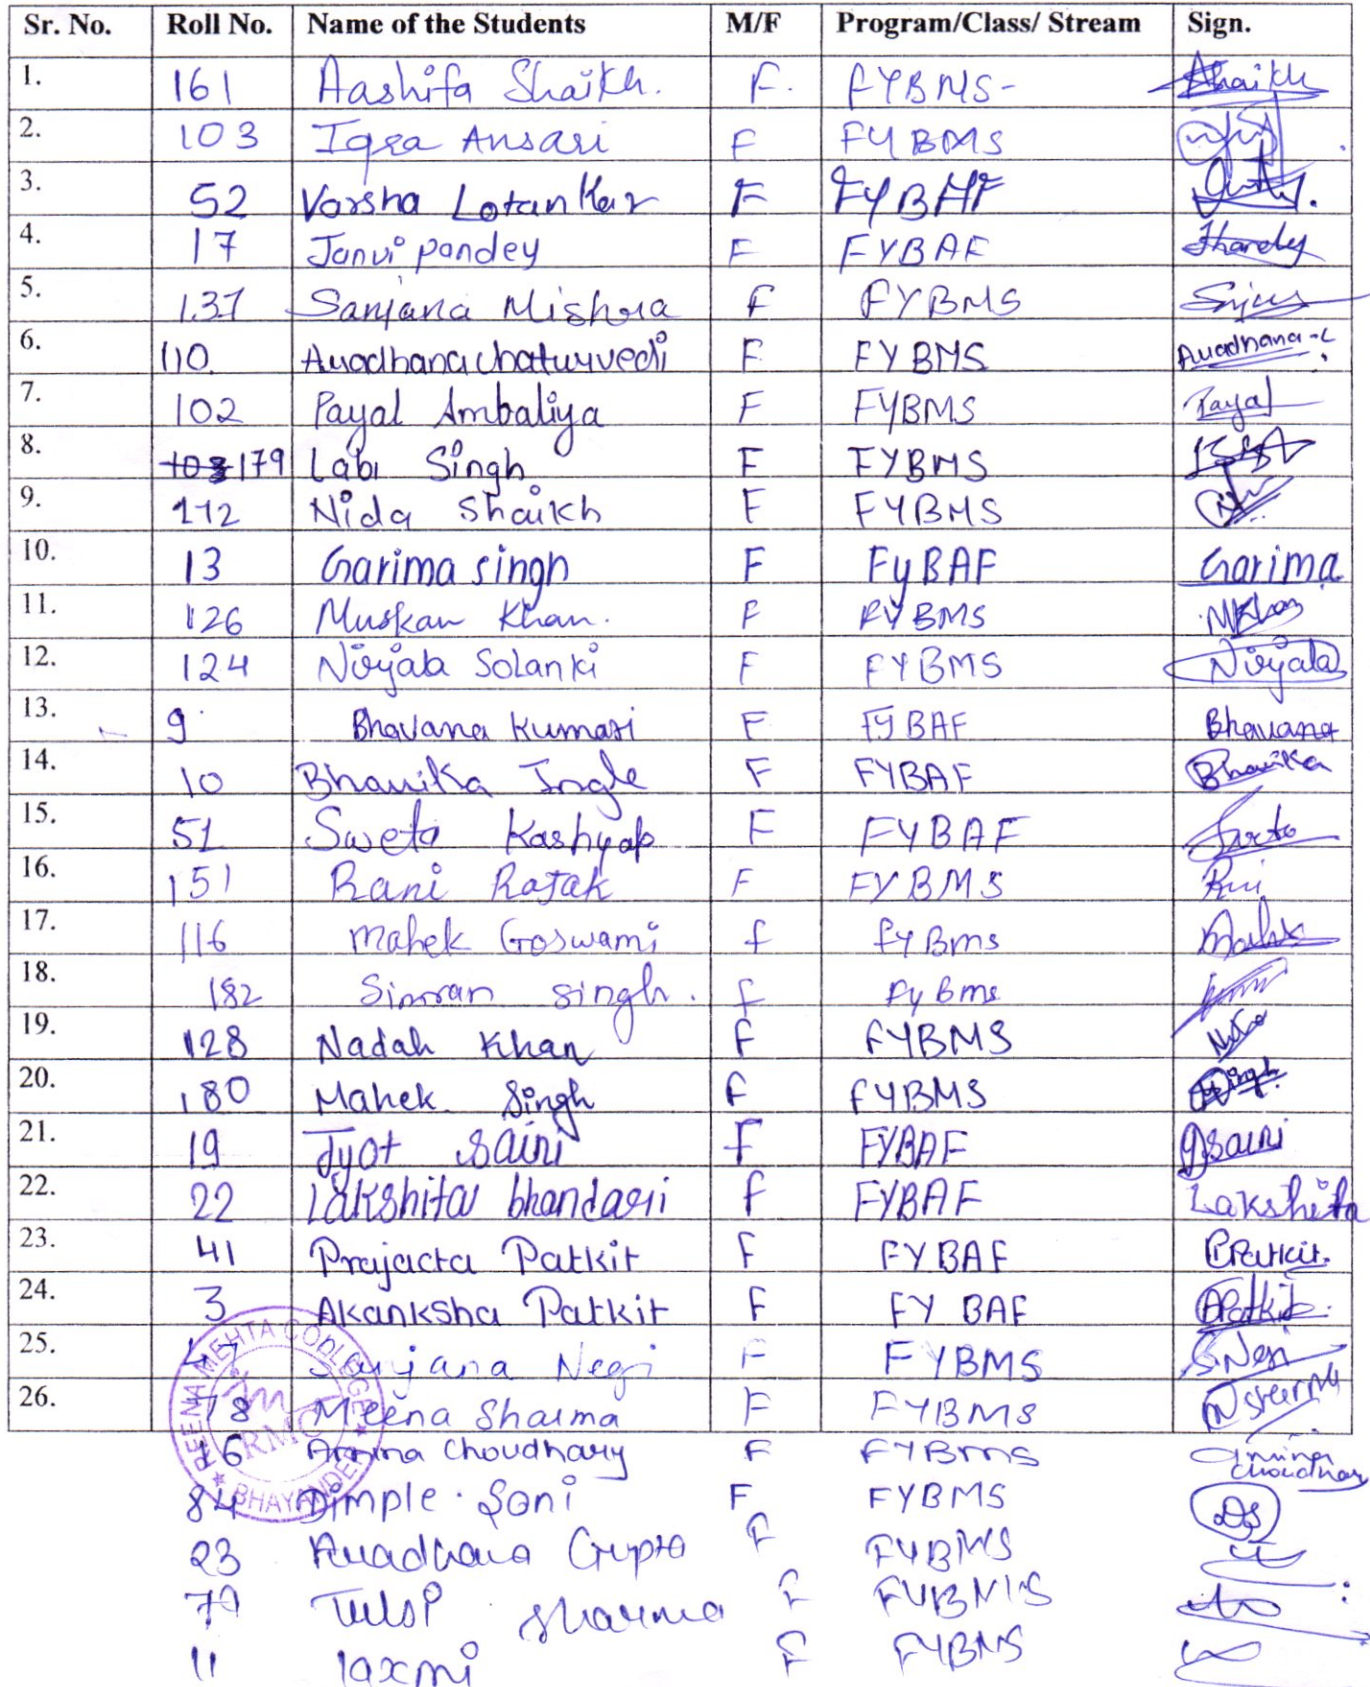 Sr. No. Roll No. Name of the Students M/F Program/Class/ Stream Sign.
1. 161 Aashifa Shaikh. F. FYBMS- Shaikh
2. 103 Iqra Ansari F FYBMS
3. 52 Varsha Lotankar F FYBAF
4. 17 Janvi pandey F FYBAF
5. 137 Sanjana Mishra F FYBMS
6. 110. Auadhana chaturvedi F FYBMS Auadhana-C
7. 102 Payal Ambaliya F FYBMS Payal
8. 179 Labi Singh F FYBMS
9. 112 Nida Shaikh F FYBMS
10. 13 Garima singh F FyBAF Garima
11. 126 Muskan Khan. F FYBMS MKhan
12. 124 Nirjala Solanki F FYBMS Nirjala
13. 9 Bhavana Kumari F FYBAF Bhavana
14. 10 Bhavika Ingle F FYBAF Bhavika
15. 51 Sweta Kashyap F FYBAF
16. 151 Rani Rajak F FYBMS
17. 116 Mahek Goswami f fyBms
18. 182 Simran singh. f fyBms
19. 128 Nadah Khan F FYBMS
20. 180 Mahek. Singh F FYBMS Singh
21. 19 Jyot Saini F FYBAF JSaini
22. 22 Lakshita bhandari f FYBAF Lakshita
23. 41 Prajacta Patkit F FYBAF PPatkit.
24. 3 Akanksha Patkit F FY BAF APatkit.
25. Sanjana Negi F FYBMS S.Negi
26. 78 Meena Sharma F FYBMS
REENA MEHTA COLLEGE
RMC
BHAYANDER
16 Amina Choudhary F FYBms Amina Choudhary
84 Dimple. Soni F FYBMS DS
23 Auadhana Gupta F FYBMS
79 Tulsi Sharma F FYBMS
11 laxmi F FYBMS